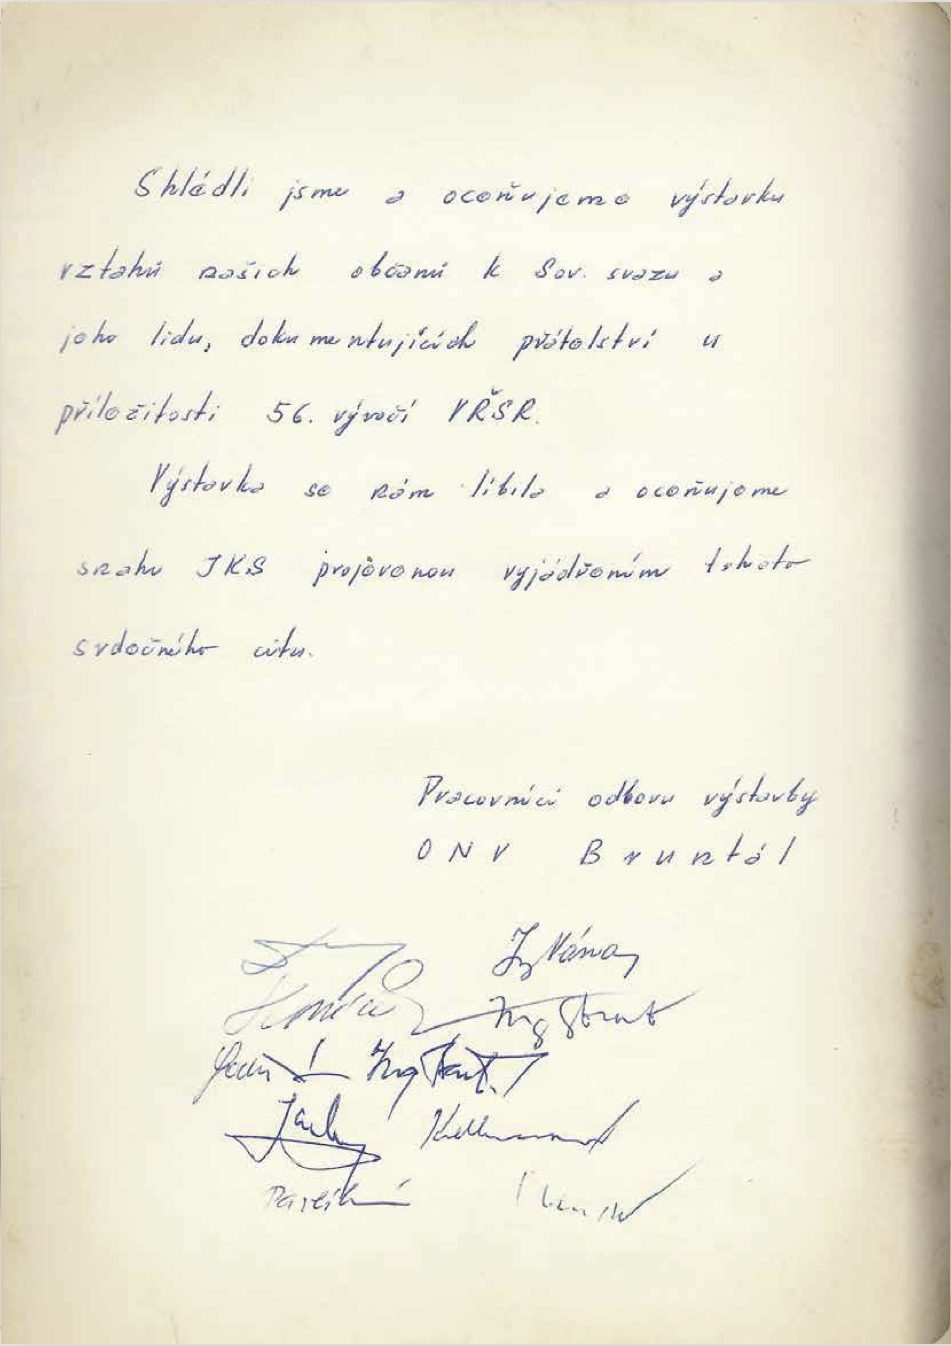 Shlédli jsme a oceňujeme výstavku
vztahů našich občanů k Sov. svazu a
jeho lidu, dokumentujících přátelství u
příležitosti 56. výročí VŘSR.
Výstavka se nám líbila a oceňujeme
snahu JKS projevenou vyjádřením tohoto
srdečného citu.
Pracovníci odboru výstavby
ONV Bruntál
Ing
Ing